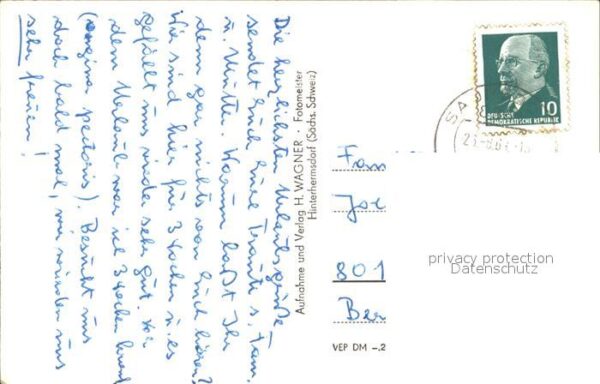 Die herzlichsten Urlaubsgrüße
sendet Euch Eure Traute s. Fam.
u. Mutti. Warum laßt Ihr
denn gar nichts von Euch hören?
Wir sind hier für 3 Wochen u. es
gefällt uns wieder sehr gut. Vor
dem Urlaub war ich 3 Wochen krank
(angina pectoris). Besucht uns
doch bald mal, wir würden uns
sehr freuen!
Aufnahme und Verlag H. WAGNER · Fotomeister
Hinterhermsdorf (Sächs. Schweiz)
10
DEUTSCHE
DEMOKRATISCHE REPUBLIK
Fam
801
privacy protection
Datenschutz
VEP DM -.2